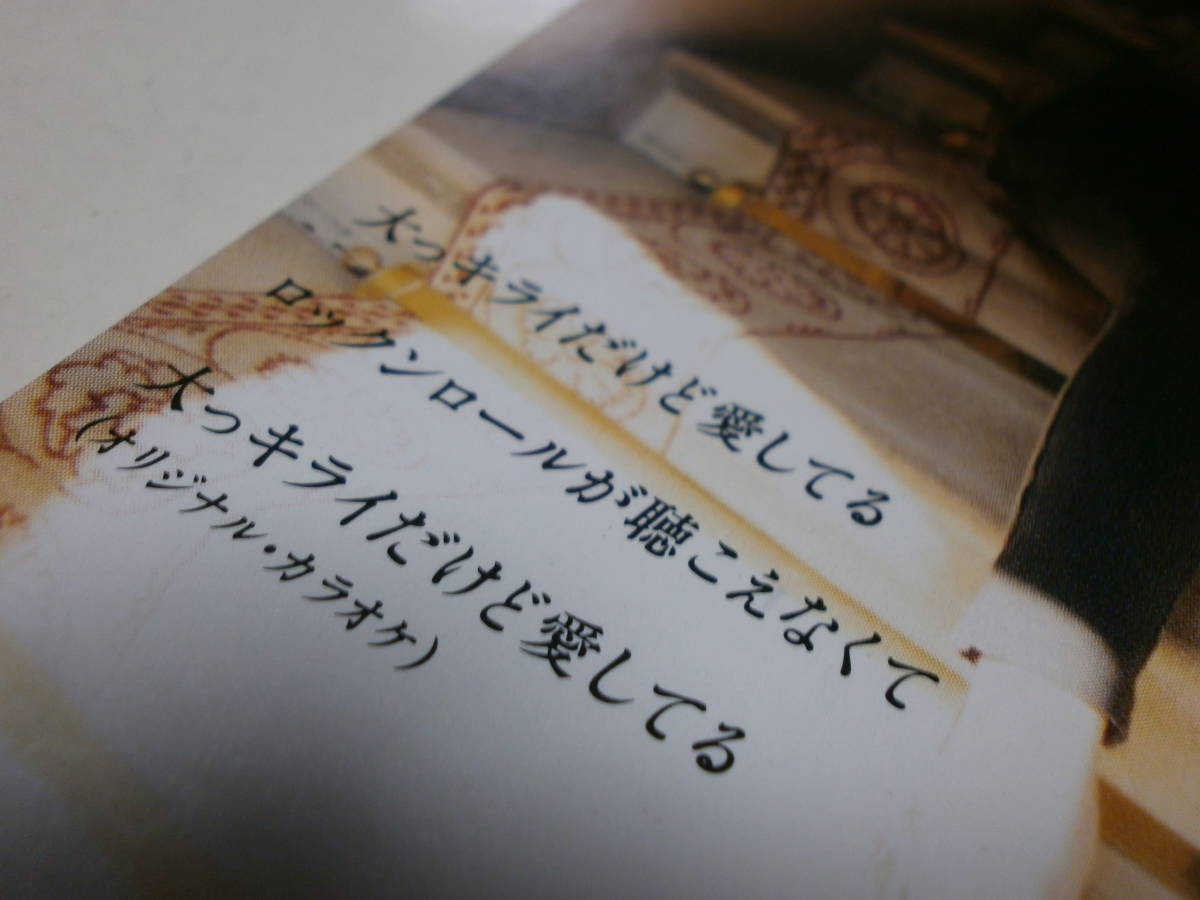 大っキライだけど愛してる
ロックンロールが聴こえなくて
大っキライだけど愛してる
(オリジナル・カラオケ)